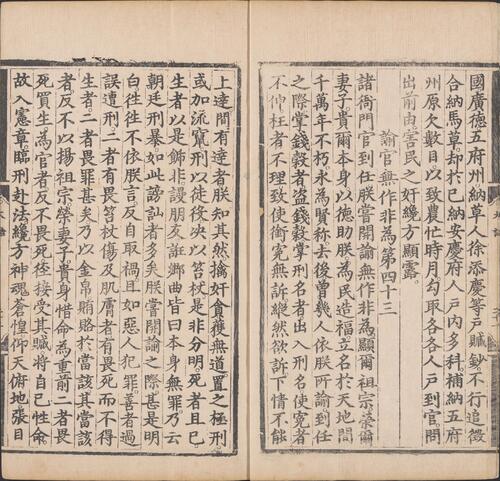 國廣德五府州納草人徐添慶等戶贓鈔不行追徵
合納馬草却於已納安慶府人戶內多科補納五府
州原欠數目以致農忙時月勾取各各人戶到官問
出前由害民之奸纔方顯露
諭官無作非為第四十三
諸衙門官到任朕嘗開諭無作非為顯爾祖宗榮爾
妻子貴爾本身以德助朕為民造福立名於天地間
千萬年不朽永為賢稱去後曾幾人依朕所諭到任
之際掌錢穀者盜錢穀掌刑名者出入刑名使冤者
不伸枉者不理致使衝冤無訴縱然欲訴下情不能
上達間有達者朕知其然擒奸貪獲無道置之極刑
或加流竄刑以徒役决以笞杖是非分明死者且已
生者以是餙非謾朋友誑鄉曲皆曰本身無罪乃云
朝廷刑暴如此謗訕者多矣朕嘗開諭之際甚是明
白徃徃不依朕言反自取禍且如惡人犯罪善者過
誤遭刑二者有畏笞杖傷及肌膚者有畏死而不得
生者二者畏罪甚矣乃以金帛賄賂於當該其當該
者反不以揚祖宗榮妻子貴身惜命為重前二者畏
死買生為官者反不畏死徑接受其贓將自己性命
故入憲章臨刑赴法纔方神魂蒼惶仰天俯地張目